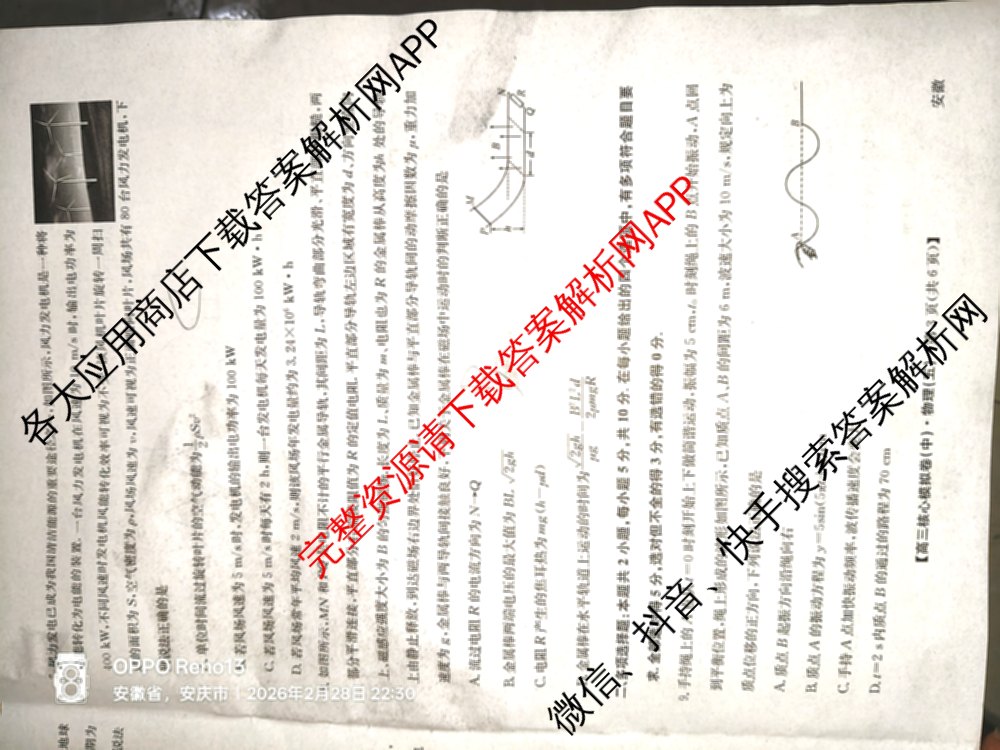 风力发电已成为我国清洁能源的重要途径,如图所示,风力发电机是一种将
能转化为电能的装置.一台风力发电机在风速为 m/s时,输出电功率为
100 kW,不同风速时发电机风能转化效率可视为不 风机叶片旋转一周扫
的面积为S,空气密度为ρ,风场风速为v,风速可视为正 叶片,风场共有80台风力发电机,下
说法正确的是
单位时间流过旋转叶片的空气动能为1/2ρSv²
若风场风速为5 m/s时,发电机的输出电功率为100 kW
C. 若风场风速为5 m/s时每天有2 h,则一台发电机每天发电量为100 kW·h
D. 若风场常年平均风速2 m/s,则该风场年发电量约为3.24×10⁶ kW·h
如图所示,MN和 阻不计的平行金属导轨,其间距为L,导轨弯曲部分光滑,平直 ,两
部分平滑连接,平直部分 阻值为R的定值电阻.平直部分导轨左边区域有宽度为d、方向
上、磁感应强度大小为B的 长度为L、质量为m、电阻也为R的金属棒从高度为h处的导
上由静止释放,到达磁场右边界处 已知金属棒与平直部分导轨间的动摩擦因数为μ,重力加
速度为g,金属棒与两导轨间接触良好, 金属棒在磁场中运动时的判断正确的是
A. 流过电阻R的电流方向为N→Q
B. 金属棒两端电压的最大值为BL√2gh
C. 电阻R产生的焦耳热为mg(h-μd)
金属棒在水平轨道上运动的时间为√2gh/μg-BL²d/2μmgR
M
P
h
B
d
N
R
Q
多项选择题:本题共2小题,每小题5分,共10分.在每小题给出的四个选项中,有多项符合题目要
求.全 得5分,选对但不全的得3分,有选错的得0分.
9. 手持绳上的 =0时刻开始上下做简谐运动,振幅为5 cm,t₁时刻绳上的B点开始振动,A点回
到平衡位置,绳上形成的 形如图所示.已知质点A、B的间距为6 m,波速大小为10 m/s,规定向上为
质点位移的正方向,下列 的是
A. 质点B起振方向沿绳向右
B. 质点A的振动方程为y=5sin(5
C. 手持A点加快振动频率,波传播速度
D. t=2 s内质点B的通过的路程为70 cm
B
【高三核心模拟卷(中)·物理(五) 页(共6页)】
安徽
地球
期为
说法
各大应用商店下载答案解析网APP
完整资源请下载答案解析网APP
微信、抖音、快手搜索答案解析网
OPPO Reno13
安徽省,安庆市 | 2026年2月28日 22:30